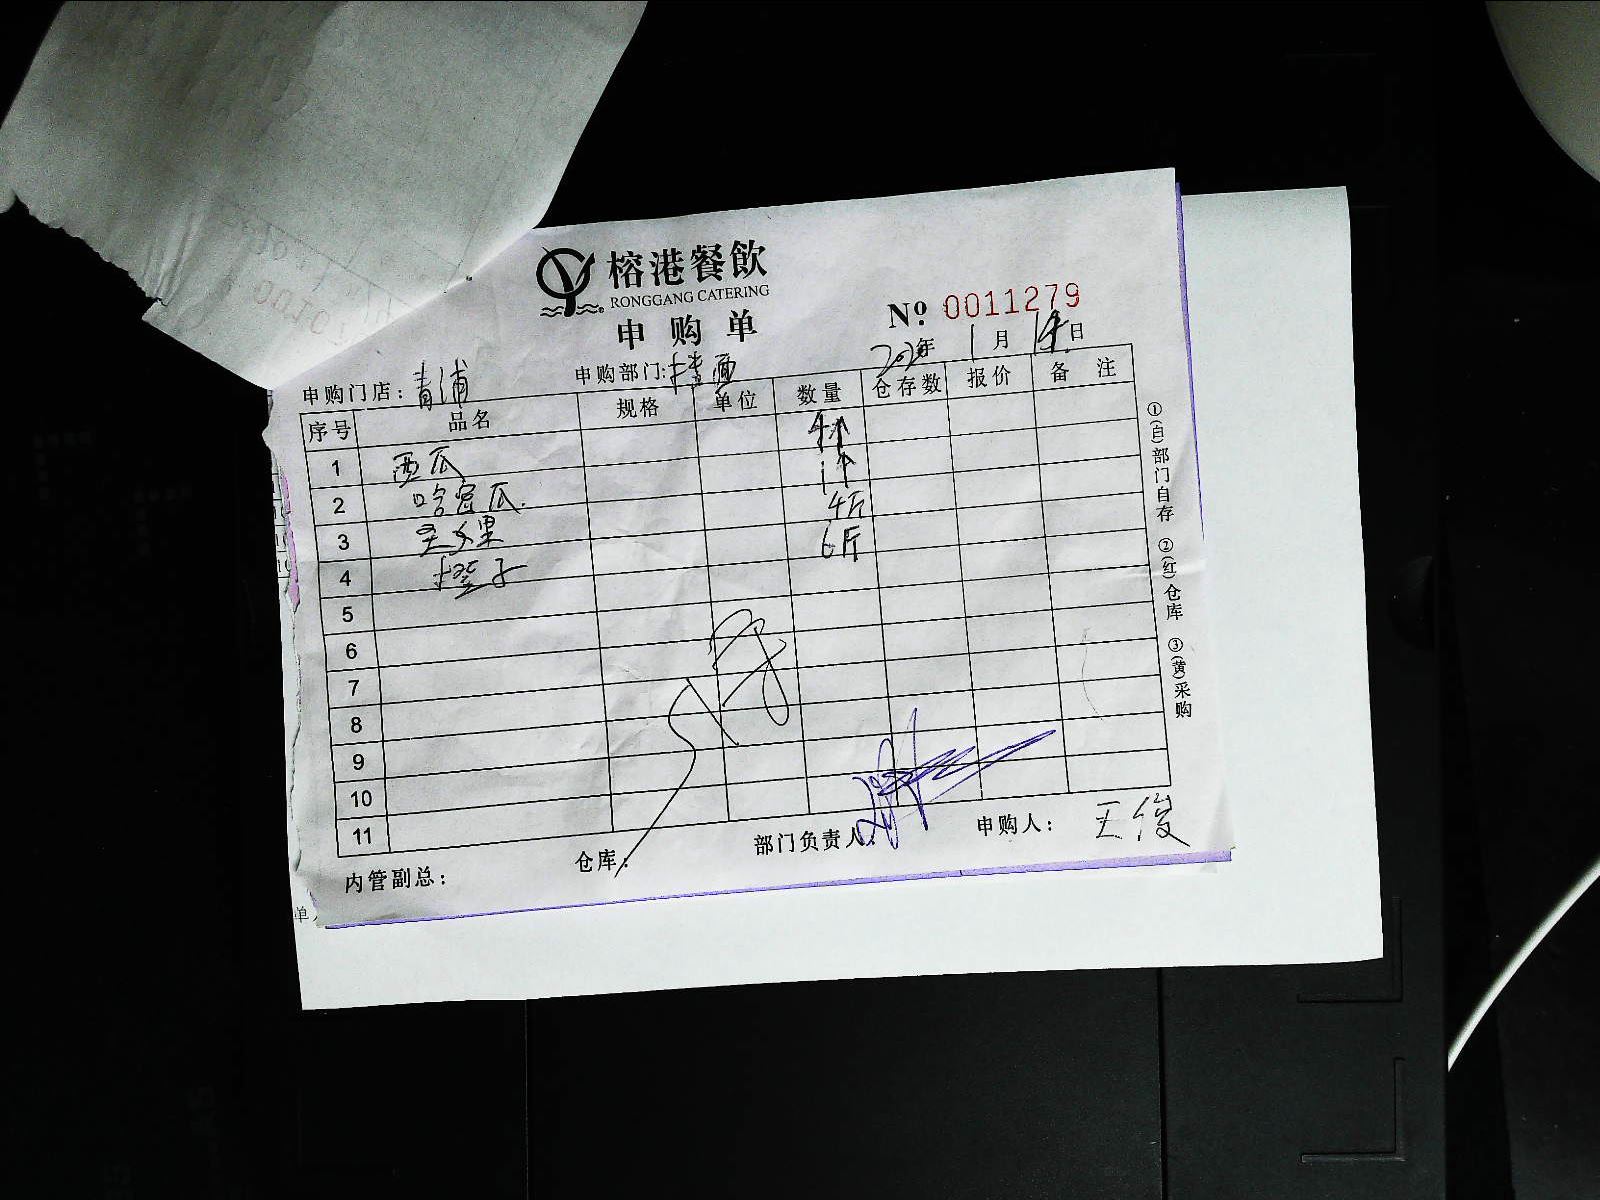 榕港餐飲
RONGGANG CATERING
申购单
No. 0011279
申购门店：青浦 申购部门： 2020年1月14日
序号 品名 规格 单位 数量 仓存数 报价 备注
1 西瓜 4个
2 哈密瓜 1个
3 圣女果 4斤
4 橙子 6斤
5
6
7
8
9
10
11
内管副总： 仓库： 部门负责人： 申购人：王俊
①(白)部门自存 ②(红)仓库 ③(黄)采购
单